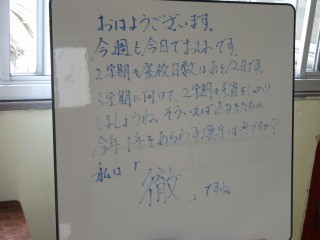 おはようございます。
今週も今日でおわりです。
2学期の登校日数はあと12日です。
3学期に向けて、2学期の
しましょうね。そういえばあなたたちの
今年1年をあらわす漢字は何ですか?
私は「
徹」ですね